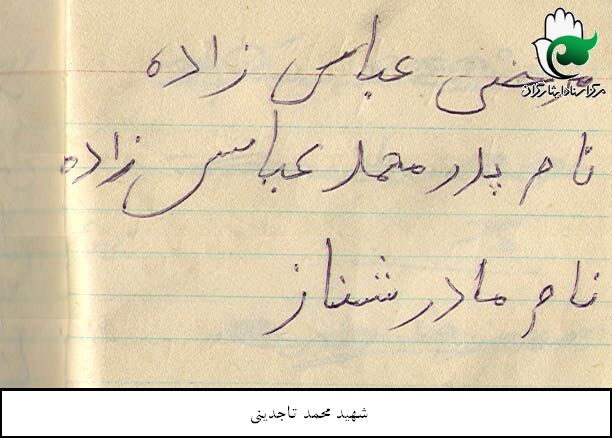 مرکز اسناد ایثارگران
عباس زاده
نام پدر محمد عباس زاده
نام مادر شناز
شهید محمد تاجدینی